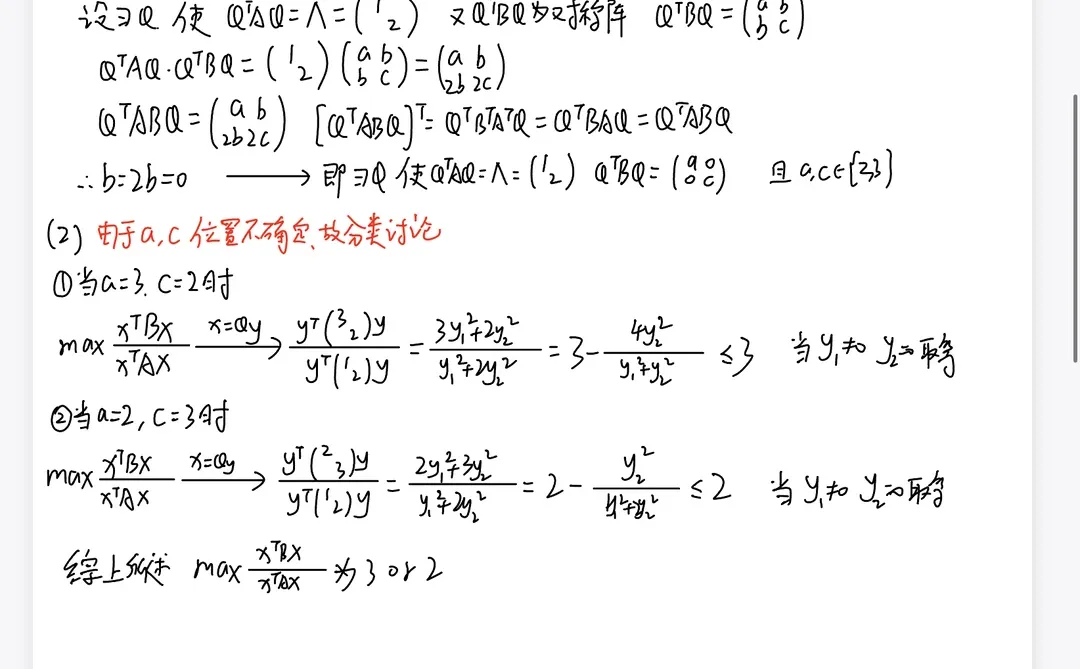 设∃Q 使 QᵀAQ=Λ=(1 2) 又QᵀBQ为对称阵 QᵀBQ=(a b b c)
QᵀAQ·QᵀBQ=(1 2)(a b b c)=(a b 2b 2c)
QᵀABQ=(a b 2b 2c) [QᵀABQ]ᵀ=QᵀBᵀAᵀQ=QᵀBAQ=QᵀABQ
∴b=2b=0 ⟶ 即∃Q 使QᵀAQ=Λ=(1 2) QᵀBQ=(a 0 0 c) 且a,c∈{2,3}
(2) 由于a,c位置不确定、故分类讨论
①当a=3、c=2时
max xᵀBx/xᵀAx x=Qy⟶ yᵀ(3 2)y/yᵀ(1 2)y = 3y₁²+2y₂²/y₁²+2y₂² = 3- 4y₂²/y₁²+y₂² ≤3 当y₁≠0 y₂=0取等
②当a=2,c=3时
max xᵀBx/xᵀAx x=Qy⟶ yᵀ(2 3)y/yᵀ(1 2)y = 2y₁²+3y₂²/y₁²+2y₂² = 2- y₂²/y₁²+2y₂² ≤2 当y₁≠0 y₂=0取等
综上所述 max xᵀBx/xᵀAx 为3 or 2